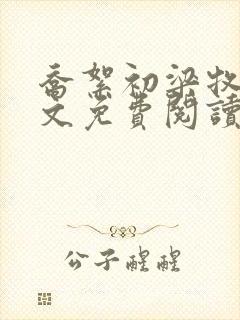 喬絮初梁牧
文免費閱讀
公子醒醒